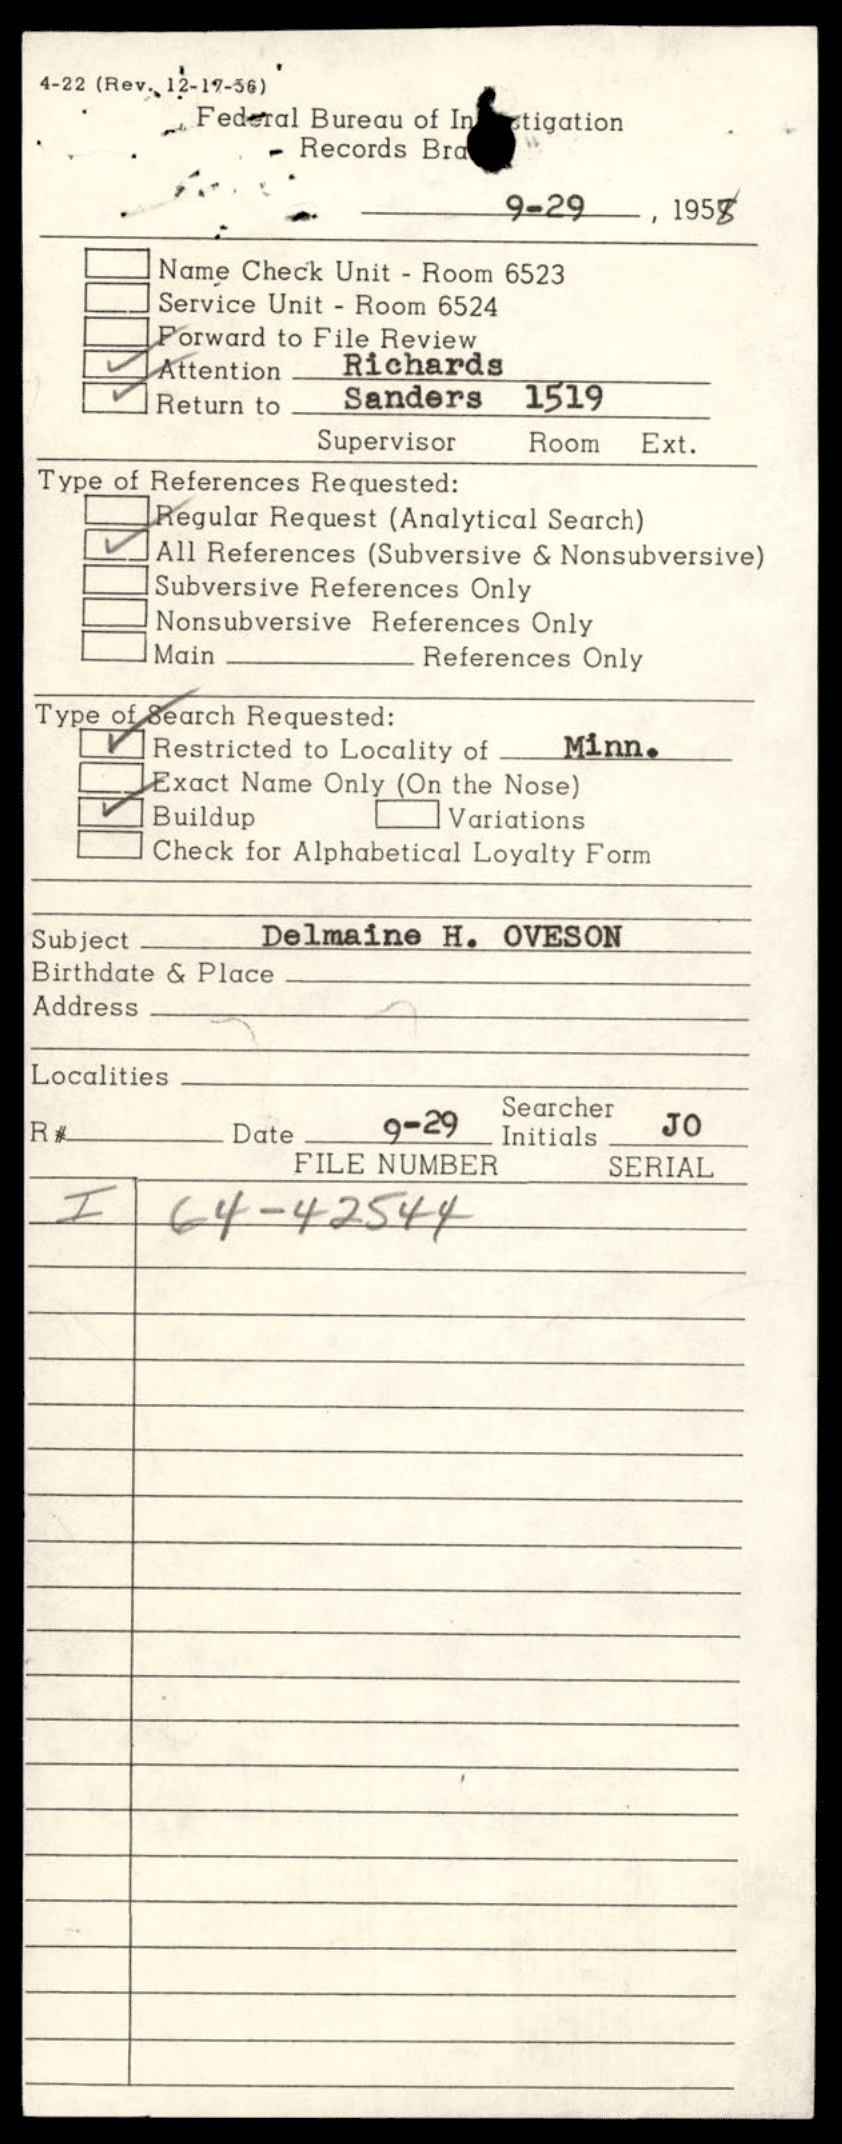 4-22 (Rev. 12-17-56)
Federal Bureau of Investigation
Records Branch
9-29, 1958
Name Check Unit - Room 6523
Service Unit - Room 6524
Forward to File Review
Attention Richards
Return to Sanders 1519
Supervisor Room Ext.
Type of References Requested:
Regular Request (Analytical Search)
All References (Subversive & Nonsubversive)
Subversive References Only
Nonsubversive References Only
Main References Only
Type of Search Requested:
Restricted to Locality of Minn.
Exact Name Only (On the Nose)
Buildup Variations
Check for Alphabetical Loyalty Form
Subject Delmaine H. OVESON
Birthdate & Place
Address
Localities
R# Date 9-29 Searcher Initials JO
FILE NUMBER SERIAL
I 64-42544